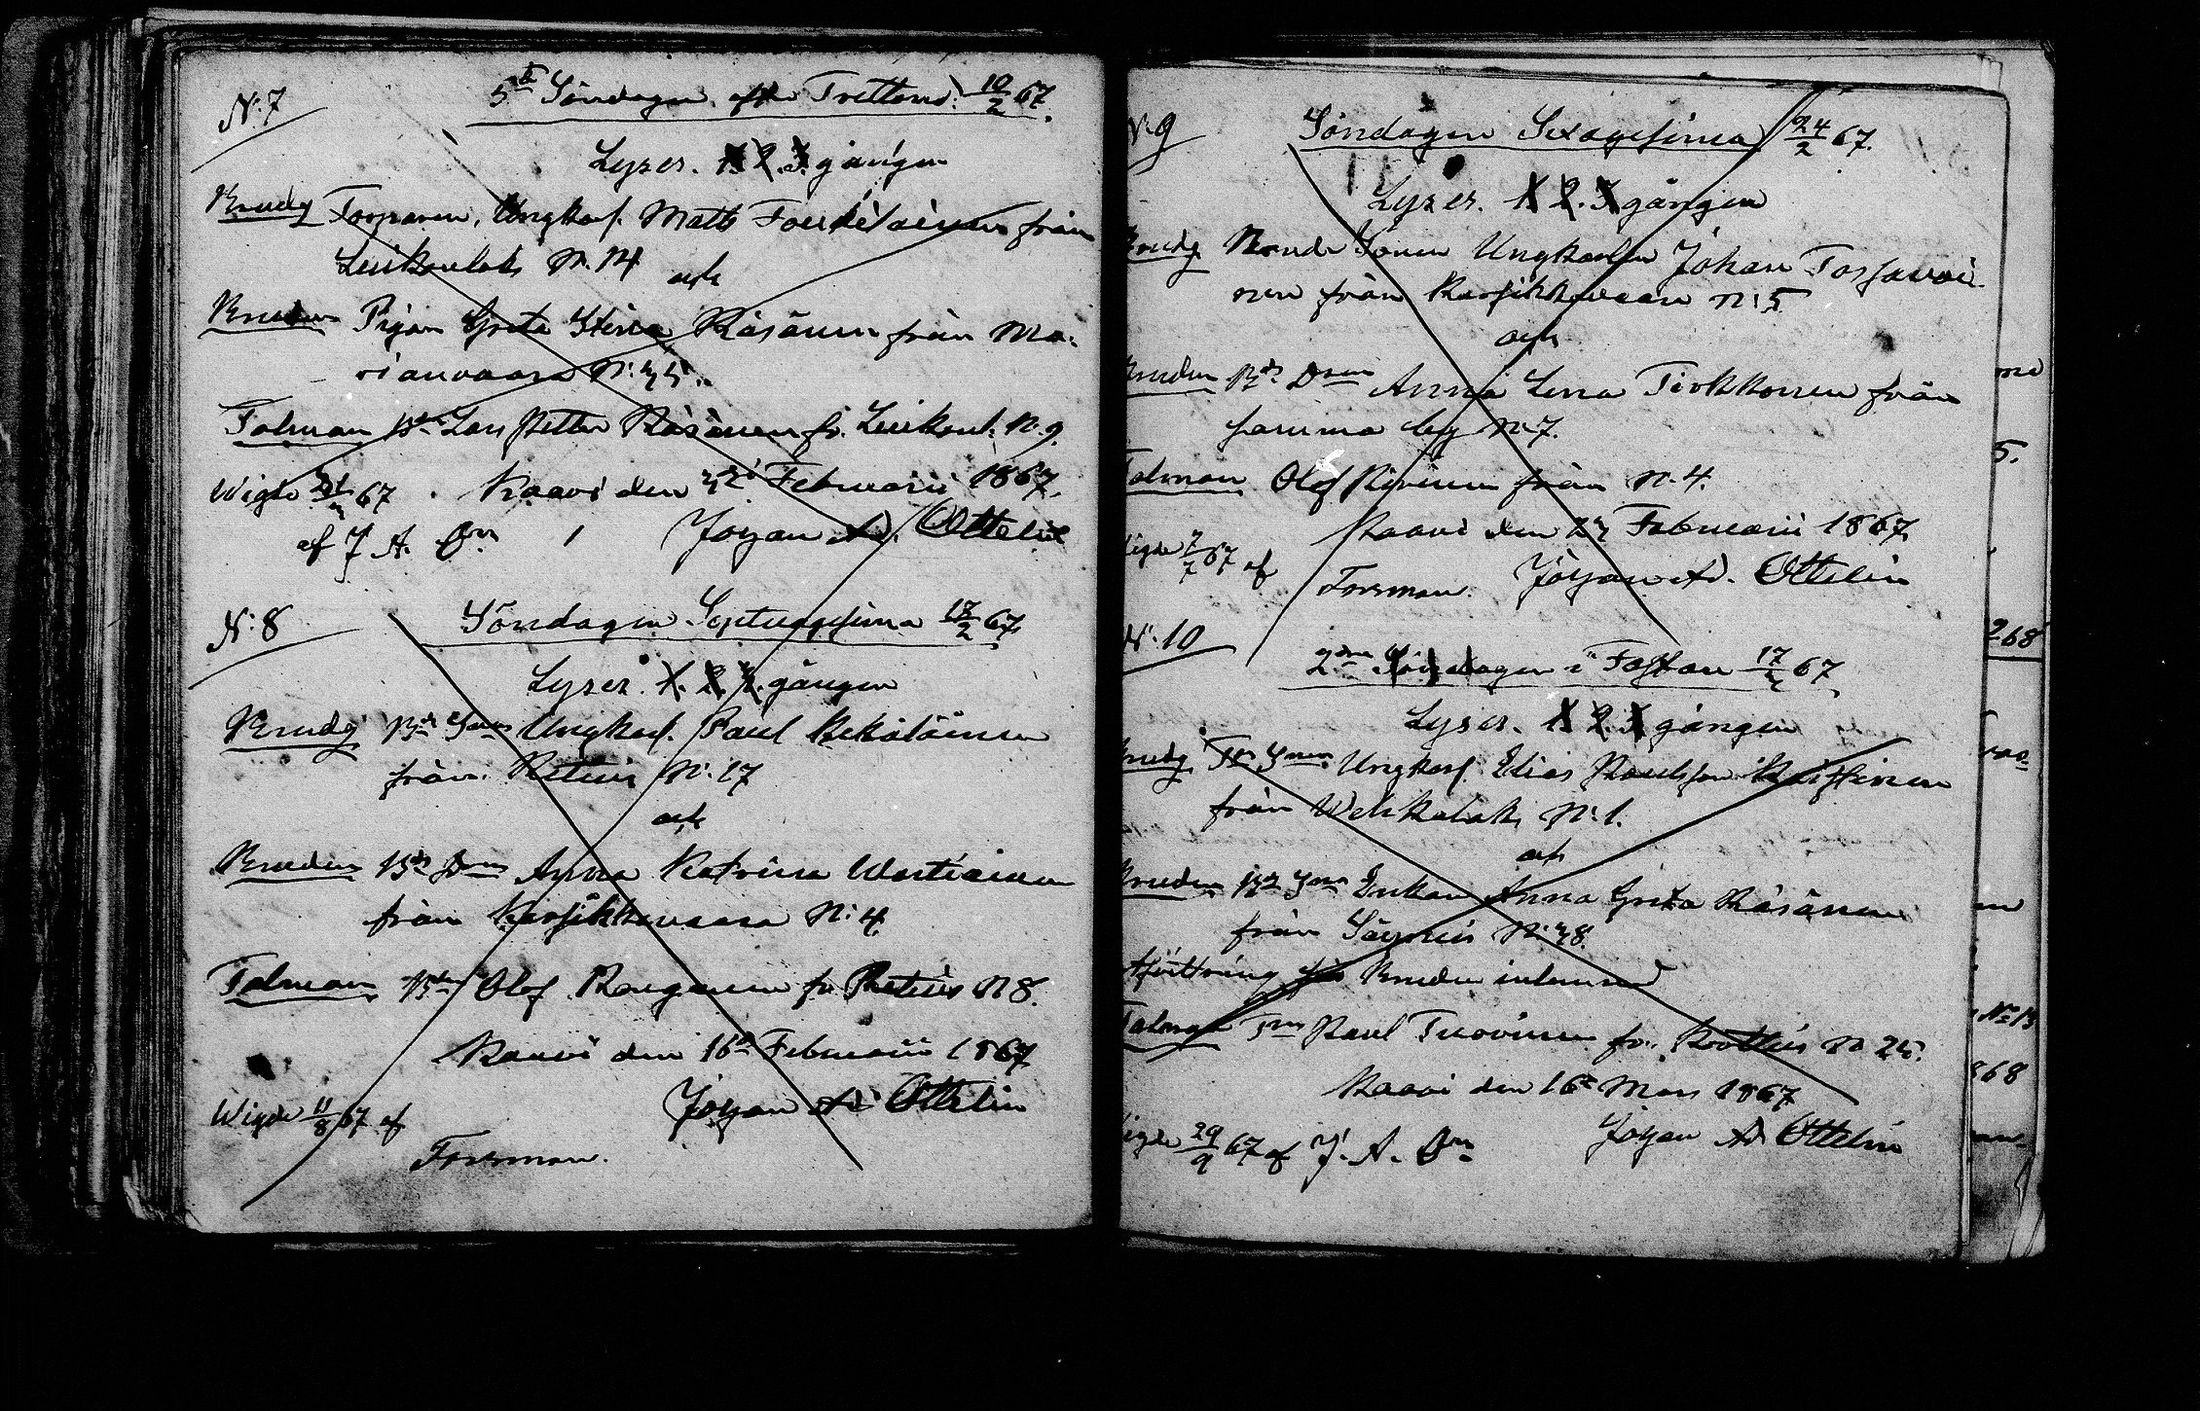 N:7
5te Söndagen efter Trettond: 10/2 67.
Lyses. 1. 2. 3. gången
Brudg Torparen, Ungkarl. Matts
från
Leinkoulak N. 14
och
Bruden Pigan Greta Stina Räsänen från Ma-
rianvaara N:35.
Talman Bd. Lars Petter Räsänen fr. Leinkoul. N. 9.
Wigde 67 Kaavi den Februarii 1867.
af J. A. Johan Ad. Ottelin
N:8
Söndagen Septuagesima 17/2 67.
Lyses. 1. 2. 3. gången
Brudg Bd Son Ungkarl. Paul Kekäläinen
från Retuis N:17
och
Bruden Bds Dn Anna Katrina Wartiainen
från Karsikkovaara N:4
Talman Bdn Olof fr Retuis N 8.
Kaavi den 16de Februarii 1867
Johan Ad Ottelin
Wigde 11/8 67 af
Forsman.
N:9
Söndagen Sexagesima 24/2 67.
Lyses. 1. 2. 3. gången
Brudg Bonde Sonen Ungkarlen Johan Tossavai-
nen från Karsikkovaara N:5
och
Bruden Bds Dren Anna Lena Tirkkonen från
samma by N:7.
Talman Olof från N. 4.
Kaavi den 23 Februarii 1867
Wigde 7/7 67 af
Forsman. Johan Ad. Ottelin
N:10
2dra Söndagen i Fastan 17/3 67
Lyses. 1. 2. 3. gången
Brudg Tor Sonen Ungkarl Elias Paulsson
från Wehkalak N:1.
och
Bruden Enkan Anna Greta Räsänen
från Säyneis N:38.
Afvittring för Bruden inlemnad
Talman Tn Paul Tuovinen fr. N 25.
Kaavi den 16de Mars 1867
Johan Ad Ottelin
Wigde 29/9 67 af J. A.
268
N:o 13
868